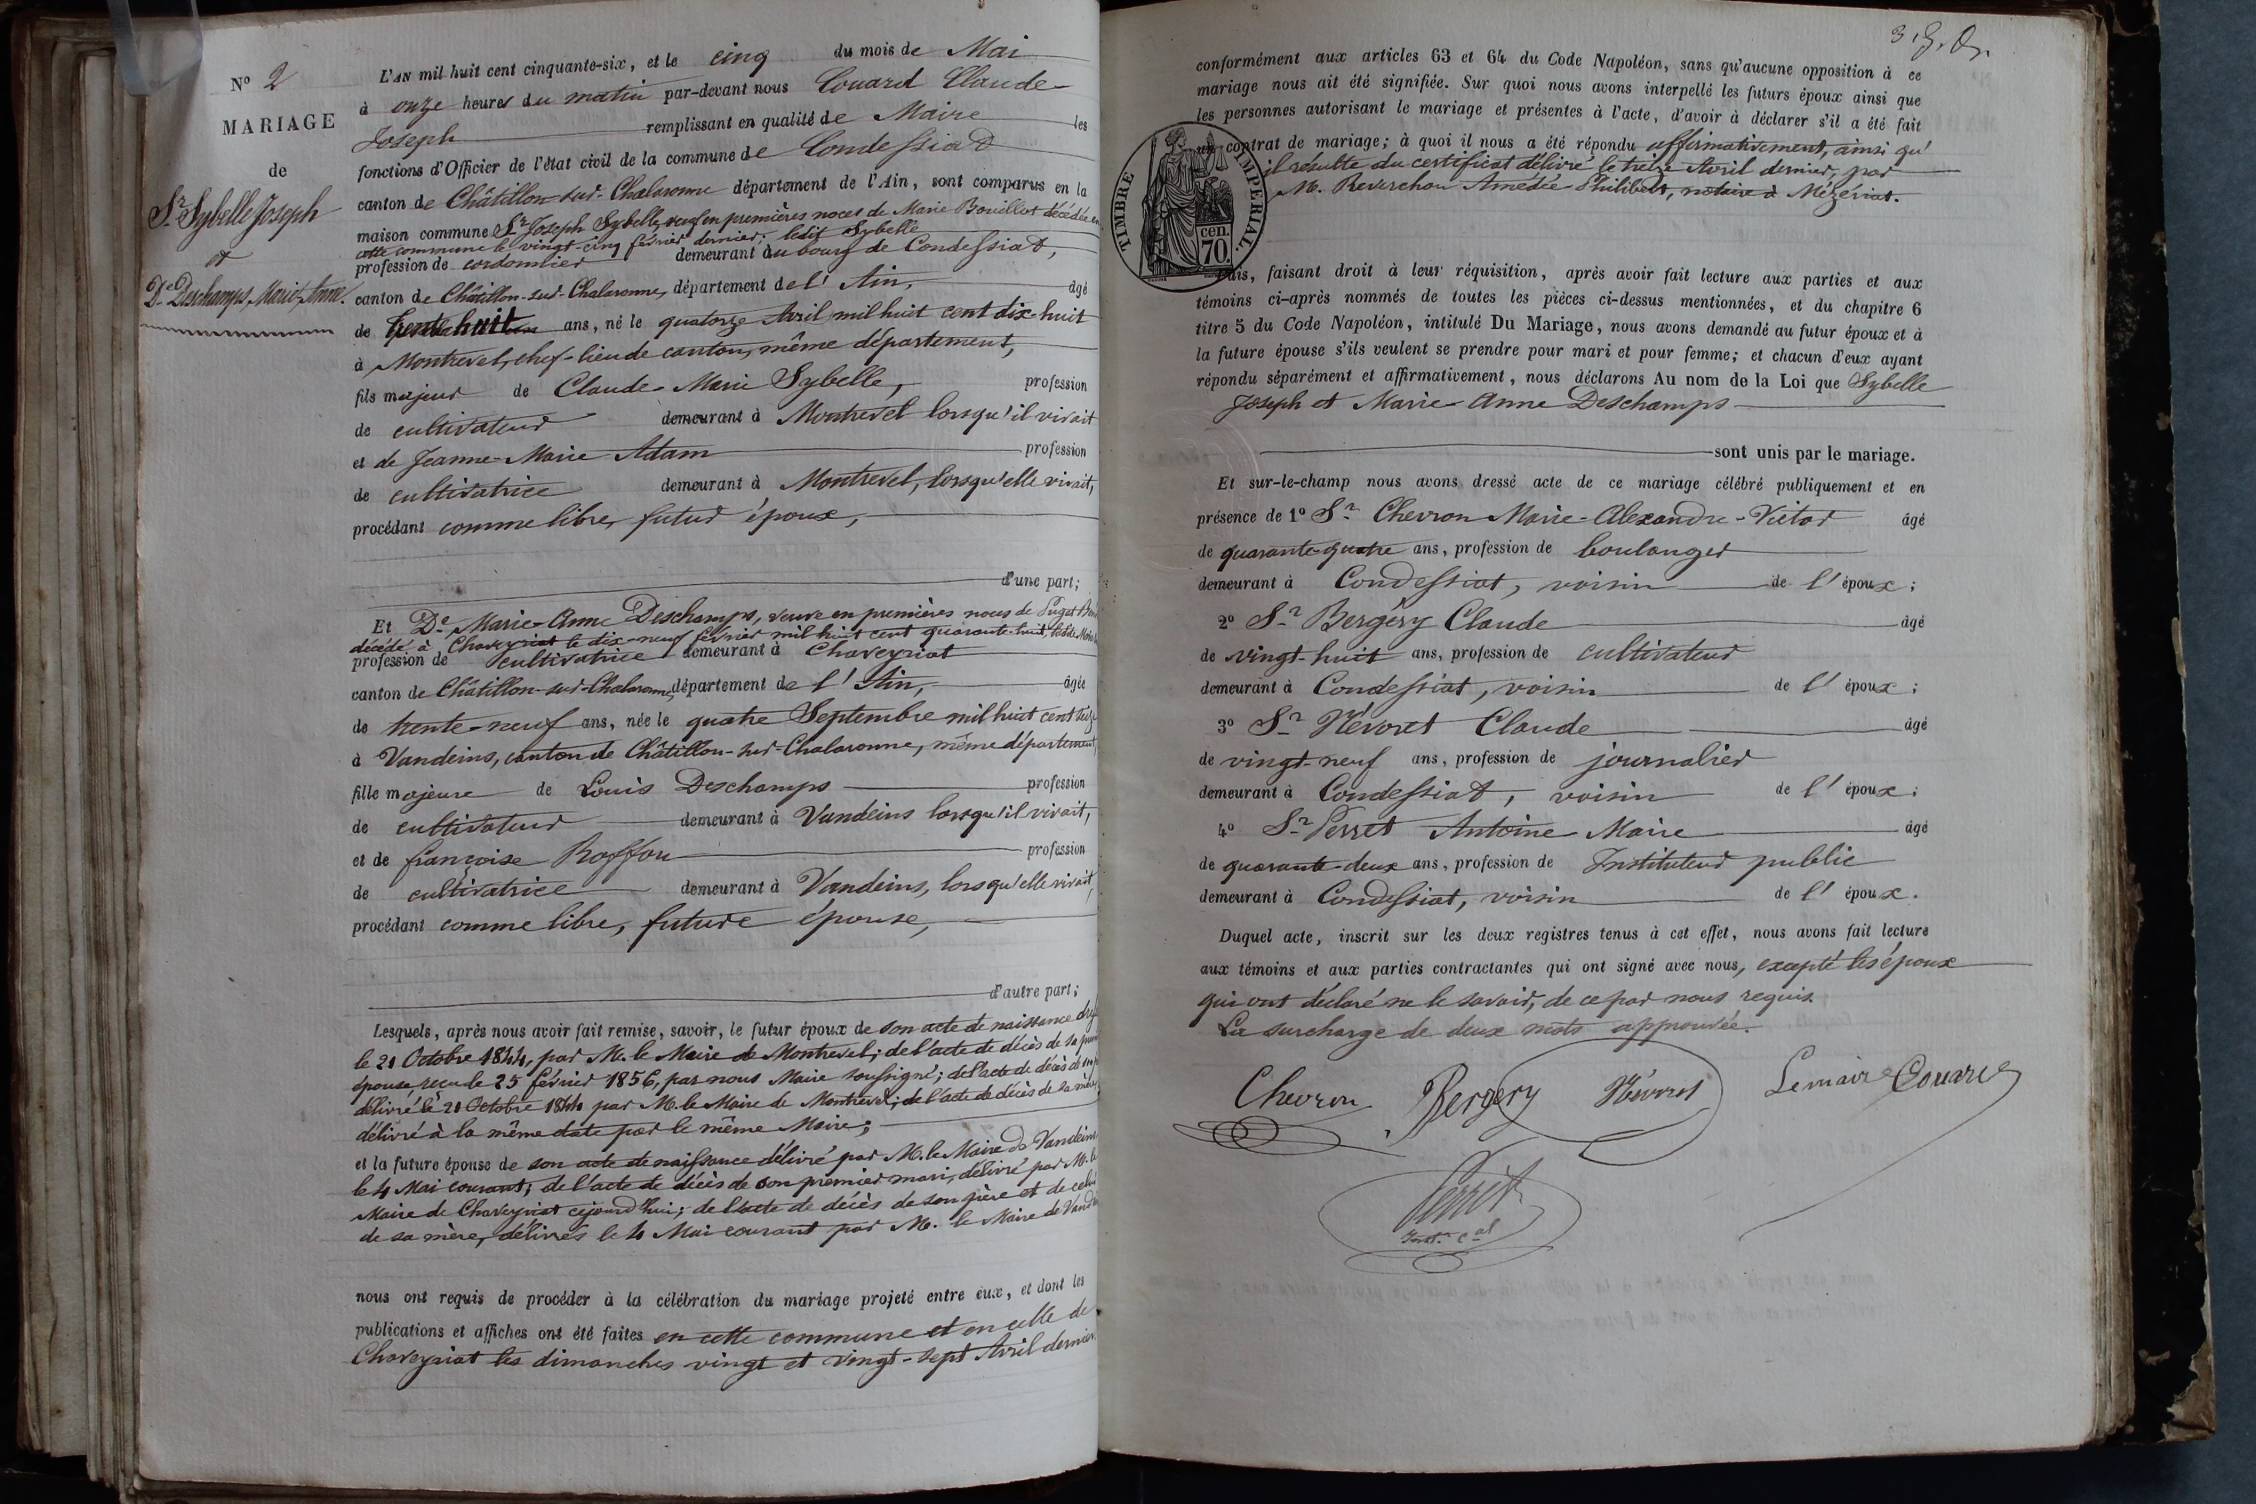 N° 2
MARIAGE
de
Sr. Sybelle Joseph
et
De. Deschamps, Marie-Anne.
L'AN mil huit cent cinquante-six, et le cinq du mois de Mai
à onze heures du matin par-devant nous Couard Claude-
Joseph remplissant en qualité de Maire les
fonctions d'Officier de l'état civil de la commune de Condessiat
canton de Châtillon-sur-Chalaronne département de l'Ain, sont comparus en la
maison commune Sr. Joseph Sybelle, veuf en premières noces de Marie Bouillot décédée en
cette commune le vingt-cinq février dernier. ledit Sybelle
profession de cordonnier demeurant au bourg de Condessiat,
canton de Châtillon-sur-Chalaronne, département de l'Ain, âgé
de trente huit ans, né le quatorze Avril mil huit cent dix-huit
à Montrevel, chef-lieu de canton, même département,
fils majeur de Claude-Marie Sybelle, profession
de cultivateur demeurant à Montrevel lorsqu'il vivait
et de Jeanne-Marie Adam profession
de cultivatrice demeurant à Montrevel, lorsqu'elle vivait,
procédant comme libre, futur époux,
d'une part;
Et De. Marie-Anne Deschamps, veuve en premières noces de Pugat
décédé à Chaveyriat le dix-neuf février mil huit cent quarante-huit,
profession de cultivatrice demeurant à Chaveyriat
canton de Châtillon-sur-Chalaronne, département de l'Ain, âgée
de trente-neuf ans, née le quatre Septembre mil huit cent
à Vandeins, canton de Châtillon-sur-Chalaronne, même département,
fille majeure de Louis Deschamps profession
de cultivateur demeurant à Vandeins lorsqu'il vivait,
et de françoise Roffou profession
de cultivatrice demeurant à Vandeins, lorsqu'elle vivait,
procédant comme libre, future épouse,
d'autre part;
Lesquels, après nous avoir fait remise, savoir, le futur époux de son acte de naissance
le 21 Octobre 1844, par M. le Maire de Montrevel; de l'acte de décès de sa
épouse, reçu le 25 février 1856, par nous Maire soussigné; de l'acte de décès de
délivré le 21 Octobre 1844 par M. le Maire de Montrevel; de l'acte de décès de sa mère
délivré à la même date par le même Maire;
et la future épouse de son acte de naissance délivré par M. le Maire de Vandeins
le 4 Mai courant; de l'acte de décès de son premier mari, délivré par M. le
Maire de Chaveyriat cejourd'hui; de l'acte de décès de son père et de celui
de sa mère, délivrés le 4 Mai courant par M. le Maire de
nous ont requis de procéder à la célébration du mariage projeté entre eux, et dont les
publications et affiches ont été faites en cette commune et en celle de
Chaveyriat les dimanches vingt et vingt-sept Avril dernier.
conformément aux articles 63 et 64 du Code Napoléon, sans qu'aucune opposition à ce
mariage nous ait été signifiée. Sur quoi nous avons interpellé les futurs époux ainsi que
les personnes autorisant le mariage et présentes à l'acte, d'avoir à déclarer s'il a été fait
un contrat de mariage; à quoi il nous a été répondu affirmativement, ainsi qu'
il résulte du certificat délivré le treize Avril dernier, par
M. Reverchon Amédée Philibert, notaire à Mézériat.
TIMBRE IMPERIAL.
cen.
70.
Puis, faisant droit à leur réquisition, après avoir fait lecture aux parties et aux
témoins ci-après nommés de toutes les pièces ci-dessus mentionnées, et du chapitre 6
titre 5 du Code Napoléon, intitulé Du Mariage, nous avons demandé au futur époux et à
la future épouse s'ils veulent se prendre pour mari et pour femme; et chacun d'eux ayant
répondu séparément et affirmativement, nous déclarons Au nom de la Loi que Sybelle
Joseph et Marie-Anne Deschamps
sont unis par le mariage.
Et sur-le-champ nous avons dressé acte de ce mariage célébré publiquement et en
présence de 1° Sr. Chevron Marie-Alexandre-Victor âgé
de quarante-quatre ans, profession de boulanger
demeurant à Condessiat, voisin de l'époux;
2° Sr. Bergéry Claude âgé
de vingt-huit ans, profession de cultivateur
demeurant à Condessiat, voisin de l'époux;
3° Sr. Névoret Claude âgé
de vingt-neuf ans, profession de journalier
demeurant à Condessiat, voisin de l'époux;
4° Sr. Perret Antoine-Marie âgé
de quarante-deux ans, profession de Instituteur public
demeurant à Condessiat, voisin de l'époux.
Duquel acte, inscrit sur les deux registres tenus à cet effet, nous avons fait lecture
aux témoins et aux parties contractantes qui ont signé avec nous, excepté les époux
qui ont déclaré ne le savoir, de ce par nous requis.
La surcharge de deux mots approuvée.
Chevron Bergery Névoret Lemaire Couard
Perret